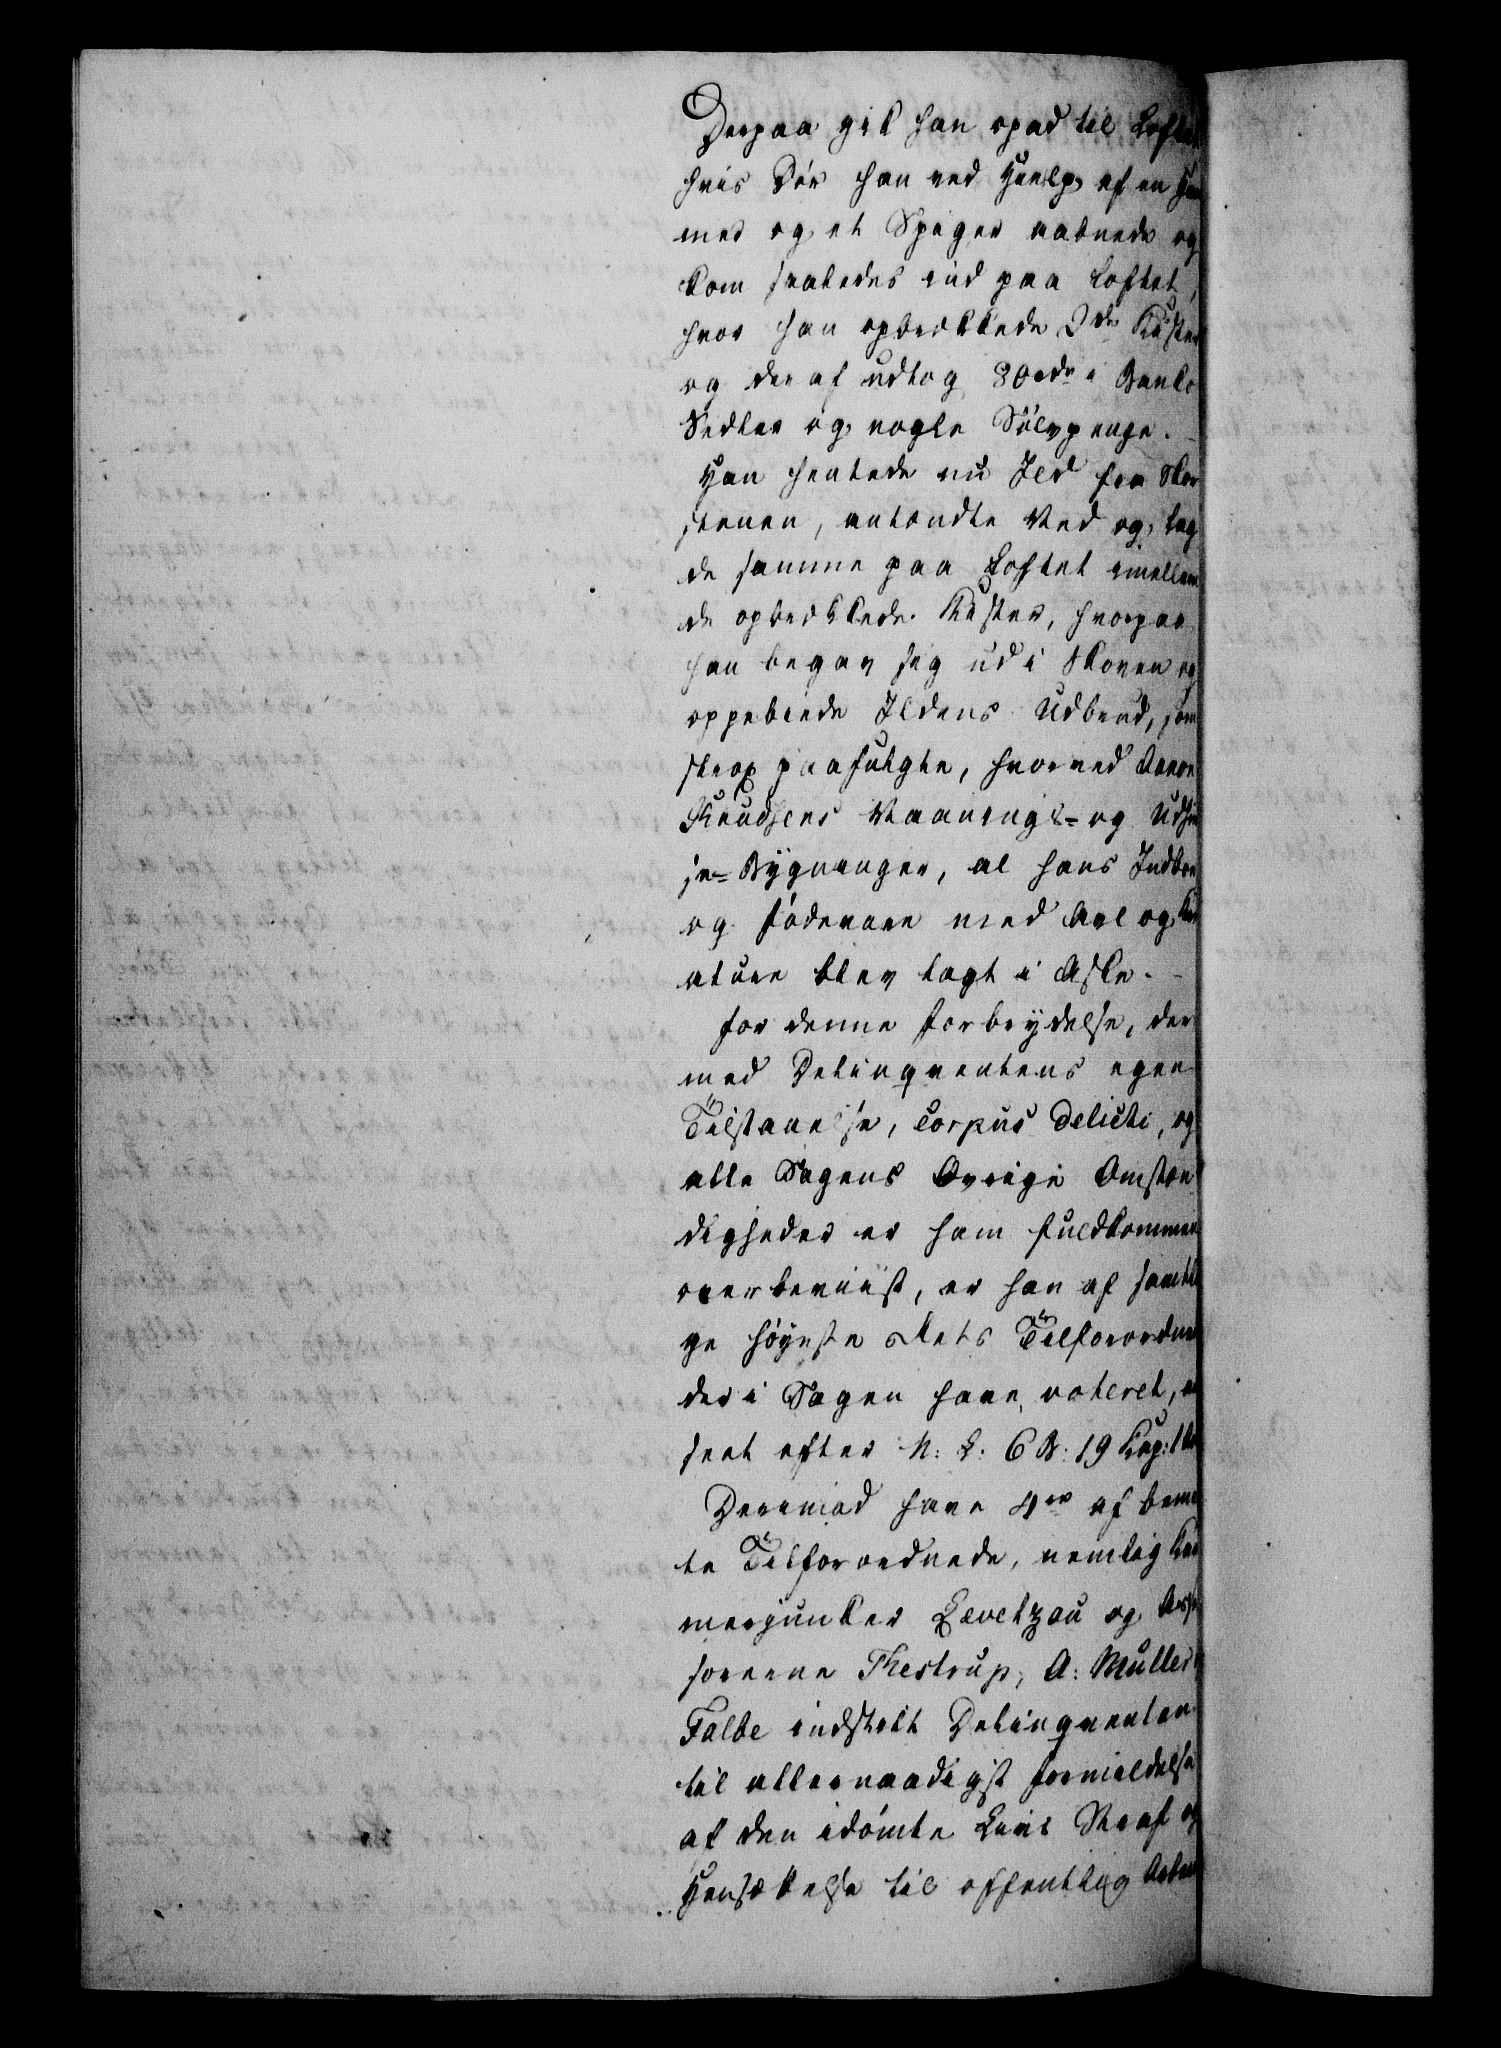 Derpaa gik han opad til Loftet
hvis Dör han ved Hielp af en Ham
mer og et Spiger aabnede og
kom saaledes ind paa Loftet,
hvor han opbrækkede 2de Kister
og deraf udtog 30 rdr i Banko
Sedler og nogle Sölvpenge. –
Han hentede nu Ild fra Skor
stenen, antændte Ved og lag
de samme paa Loftet imellem
de opbrækkede Kister, hvorpaa
han begav sig ud i Skoven og
oppebiede Ildens Udbrud, som
strax paafulgte, hvorved Aaron
Knudsens Vaanings- og Udhu
se-Bygninger, al hans Indboe
og Födevare med Avl og Kre
ature blev lagt i Aske. –
For denne Forbrydelse, der
med Delinqventens egen
Tilstaaelse, Corpus delicti, og
alle Sagens Övrige Omstæn
digheder er ham fuldkommen
overbeviist, er han af samtli
ge höyeste Rets Tilforordne
der i Sagen have voteret, an
seet efter N: L. 6 B: 19 Kap: 1 Art
Derimod have 4re af bemel
te Tilforordnede, nemlig Kam
merjunker Levetzau og Asses
sorerne Thestrup, A: Müller
Falbe indstilt Delinqventen
til allernaadigst Formildelse
af den idömte Livs Straf og
Hensættelse til offentlig Arbeid